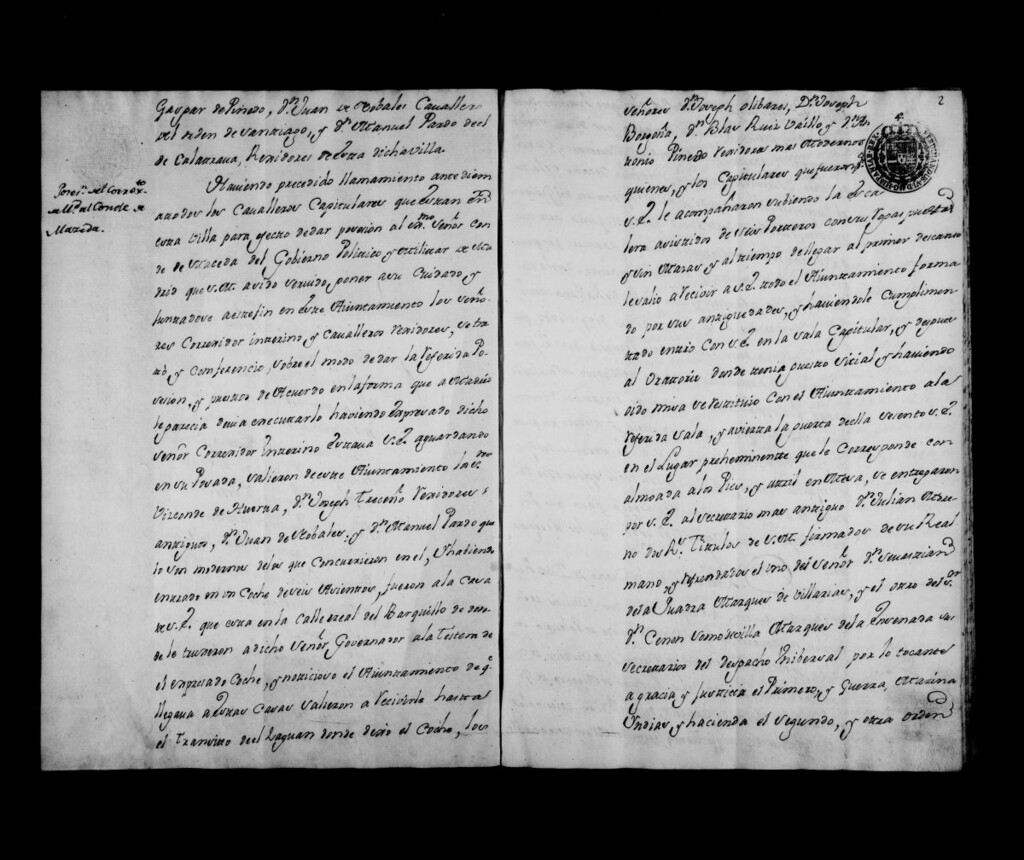 Gaspar de Pinedo, Dn Juan de Nobales Cavallero
del orden de Santiago, y Dn Manuel Pardo de el
de Calatrava, Rexidores de esta dicha Villa.
Poson del Correxto
de Md al Conde de
Mazeda.
Haviendo precedido llamamiento ante diem
a todos los Cavalleros Capitulares que estan en
esta villa para efecto de dar posesion al Exmo Señor Con
de de Maceda del Govierno Politico y Militar de Ma
drid que S.M. a sido servido poner a su Cuidado, y
Juntadose a este fin en este Aiuntamiento los Seño
res Corregidor interino y Cavalleros Rexidores, se tra
tó, y Conferenció, sobre el modo de dar la referida Po
sesion, y puestos de Acuerdo en la forma que a Madrid
le parecia devia executarlo haviendo expresado dicho
Señor Correxidor Interino estava S.E. aguardando
en su Posada, salieron de este Aiuntamiento los Sres
Vizconde de Huerta, Dn Joseph Treceño Rexidores
antiguos, Dn Juan de Nobales, y Dn Manuel Pardo que
lo son modernos de los que Concurrieron en el, y haviendo
entrado en un Coche de seis Asientos, fueron a la Casa
de S.E. que esta en la Calle real del Barquillo de don
de le truxeron a dicho Señor Governador a la Testera de
el expresado Coche, y noticioso el Aiuntamiento de q
llegava a estas Casas salieron a recivirle hasta
el Transito de el Zaguan donde dexó el Coche, los
2
Señores Dn Joseph Olibares, Dn Joseph
Borgoña, Dn Blas Ruiz Bailló y Dn An
tonio Pinedo Rexidores mas Modernos
quienes, y los Capitulares que fueron por
S.E. le acompañaron subiendo la Esca
lera asistidos de seis Porteros con sus Ropas puestas
y sin Mazas y al tiempo de llegar al primer descanso
le salió a recivir a S.E. todo el Aiuntamiento forma
do por sus antiguedades, y haviendole Cumplimen
tado entró Con S.E. en la Sala Capitular, y despues
al Oratorio donde tenia puesto sitial y haviendo
oido misa se restituió Con el Aiuntamiento a la
referida Sala, y avierta la puerta de ella se sento S.E.
en el Lugar preheminente que le Corresponde con
almoada a los Pies, y atril en Mesa, se entregaron
por S.E. al Secretario mas antiguo Dn Julian More
no dos Rs Titulos de S.M. firmados de su Real
mano, y refrendados el uno del Señor Dn Sevastian
de la Quadra Marques de Villarias, y el otro del Sor
Dn Cenon Somodevilla Marques de la Ensenada sus
Secretarios del despacho Unibersal por lo tocante
a gracia, y Justicia el Primero, y Guerra, Marina
Indias, y hacienda el segundo, y otra orden